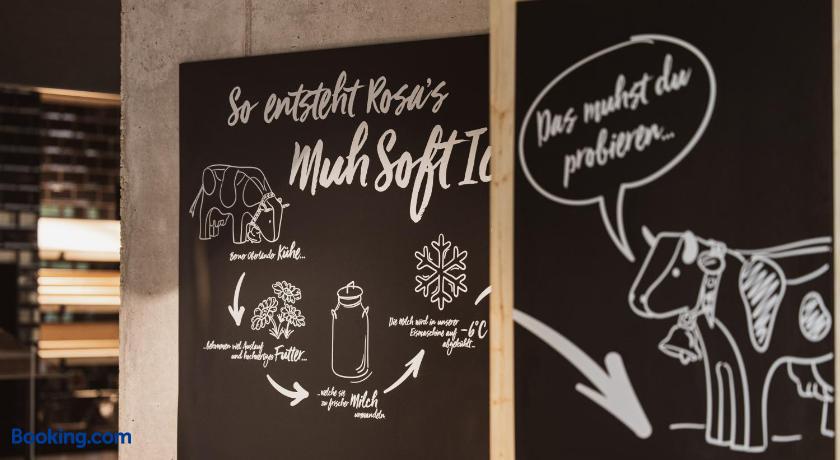 So entsteht Rosa's
Muh Soft Ic
Berner Oberländer Kühe...
...bekommen viel Auslauf
und hochwertiges Futter...
...welche sie
zu frischer Milch
umwandeln
Die Milch wird in unserer
Eismaschine auf -6°C
abgekühlt...
Das muhst du
probieren...
Booking.com